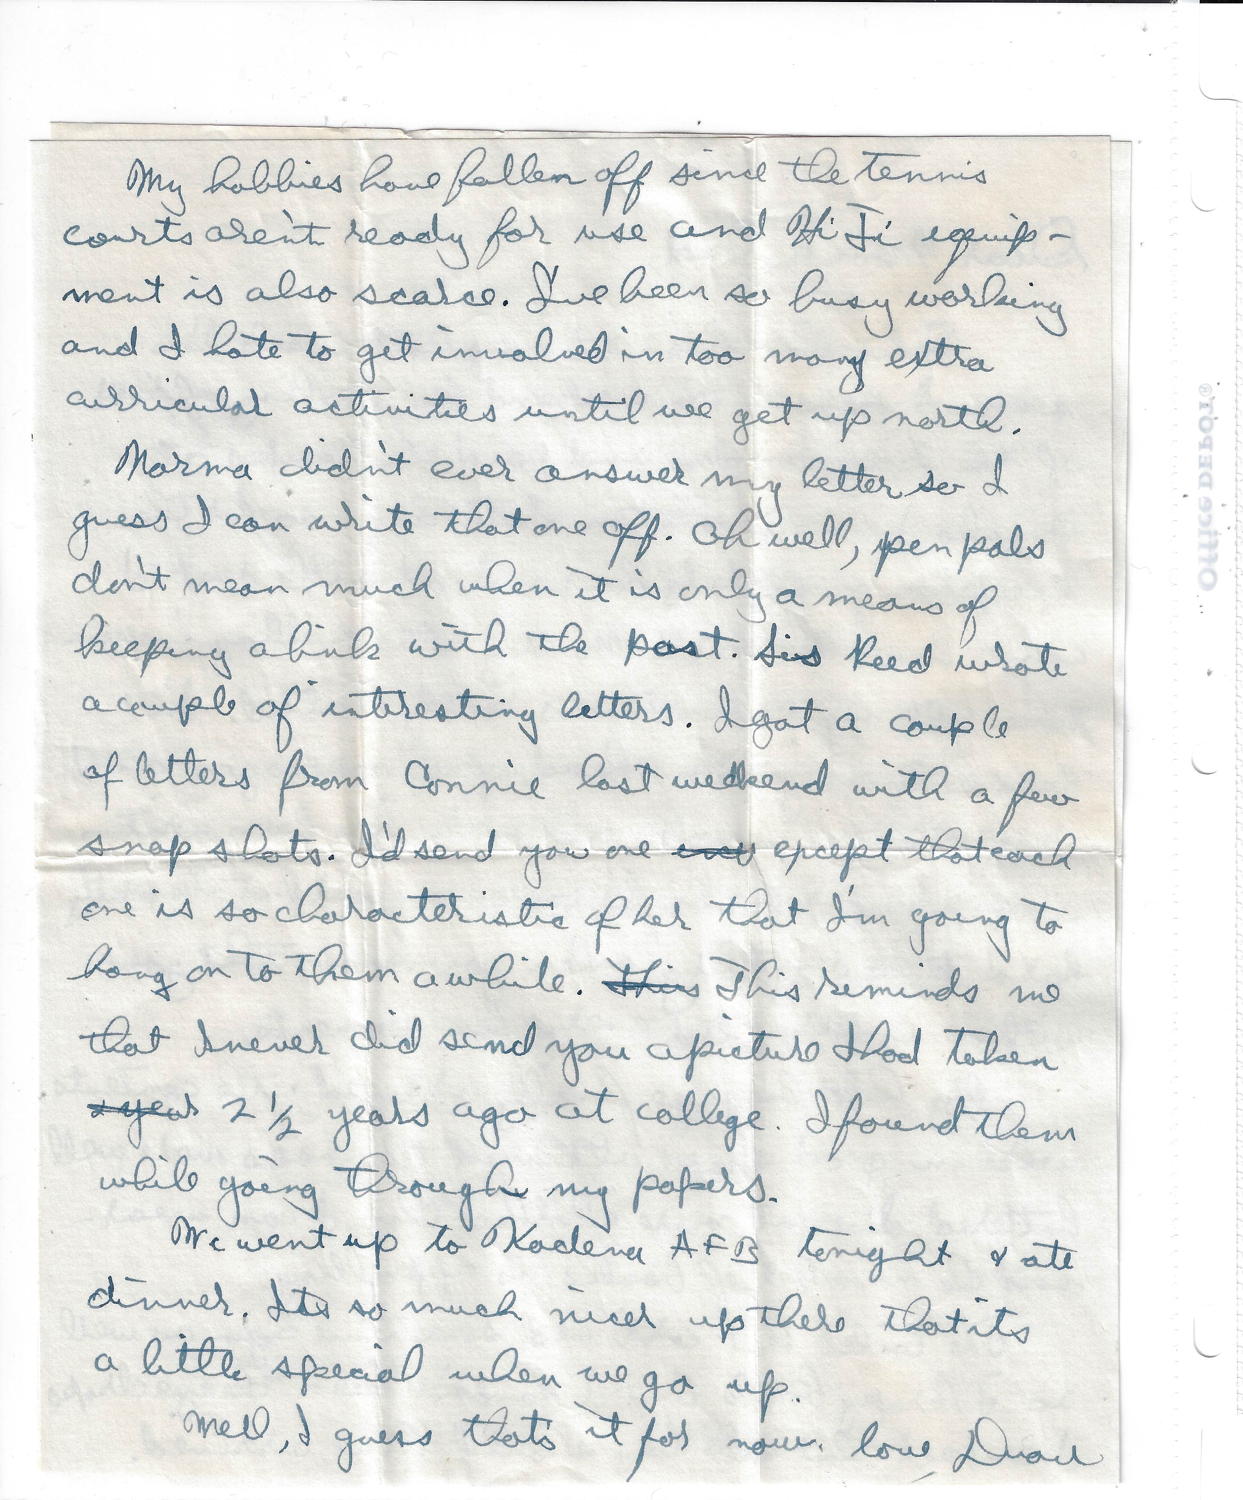 My hobbies have fallen off since the tennis
courts aren't ready for use and Hi Fi equip-
ment is also scarce. I've been so busy working
and I hate to get involved in too many extra
curricular activities until we get up north.
Norma didn't ever answer my letter so I
guess I can write that one off. Oh well, pen pals
don't mean much when it is only a means of
keeping a link with the past. Sis Reed wrote
a couple of interesting letters. I got a couple
of letters from Connie last weekend with a few
snap shots. I'd send you one except that each
one is so characteristic of her that I'm going to
hang on to them awhile. This This reminds me
that I never did send you a picture I had taken
a year 2 1/2 years ago at college. I found them
while going through my papers.
We went up to Kadena AFB tonight & ate
dinner. Its so much nicer up there that its
a little special when we go up.
Well, I guess that's it for now. love, Duane
Office DEPOT®